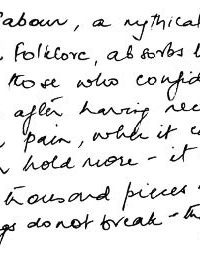 Sabour, a mythical
Folklore, absorbs
those who confid
after having rec
pain, when it c
hold more - it
thousand pieces
gs do not break - th